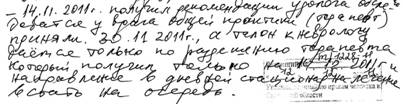 - 14.11.2011г. получил рекомендации уролога обсле-
доваться у врача общей практики (терапевт)
приняли 30.11.2011г., а талон к неврологу
даётся только по разрешению терапевта
который получил только на 12.2011г и
направление в дневной стационар на лечение
встать на очередь.